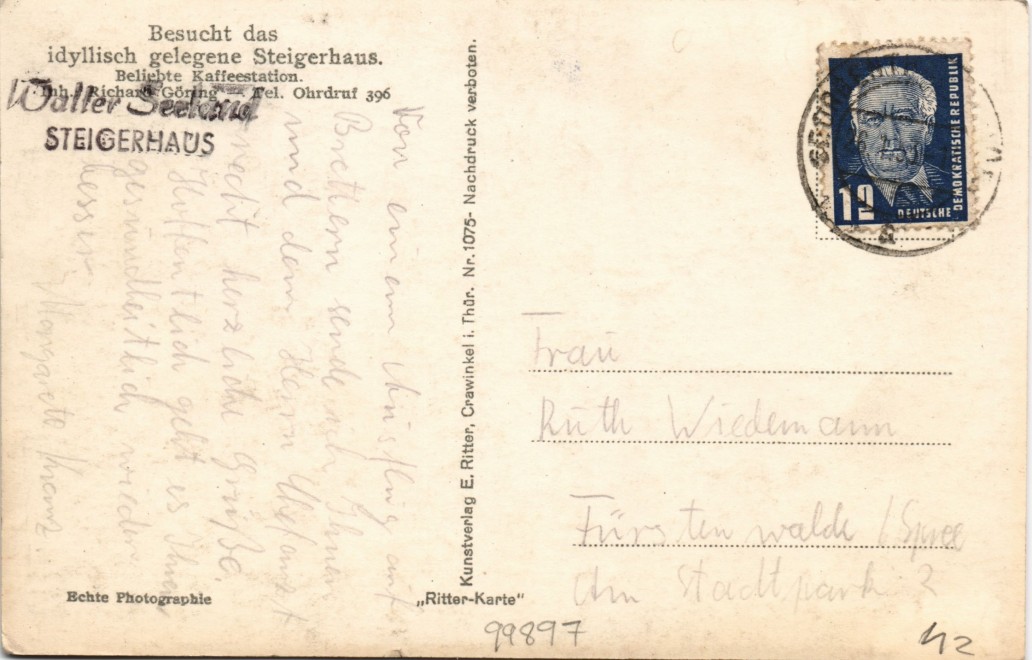 Besucht das
idyllisch gelegene Steigerhaus.
Beliebte Kaffeestation.
Inh. Richard Göring — Tel. Ohrdruf 396
Walter Seeland
STEIGERHAUS
Von einem Ausflug
Brettern sende ich Ihnen
und dem Herrn
recht herzliche Grüße.
Hoffentlich geht es Ihnen
gesundheitlich wieder
besser.
Margarete
Echte Photographie
Kunstverlag E. Ritter, Crawinkel i. Thür. Nr. 1075- Nachdruck verboten.
„Ritter-Karte“
DEUTSCHE
DEMOKRATISCHE REPUBLIK
a
Frau
Ruth Wiedemann
Fürstenwalde / Spree
Am Stadtpark 2
99897